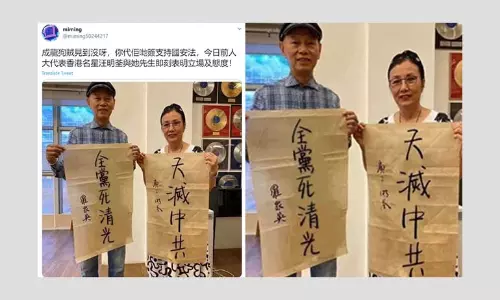 miming
@miming59244217
成龍狗賊見到沒呀，你代佢哋簽支持國安法，今日前人
大代表香港名星汪明荃與她先生即刻表明立場及態度！
Translate Tweet
全黨死清光
羅家英
天滅中共
全黨死清光
羅家英
天滅中共